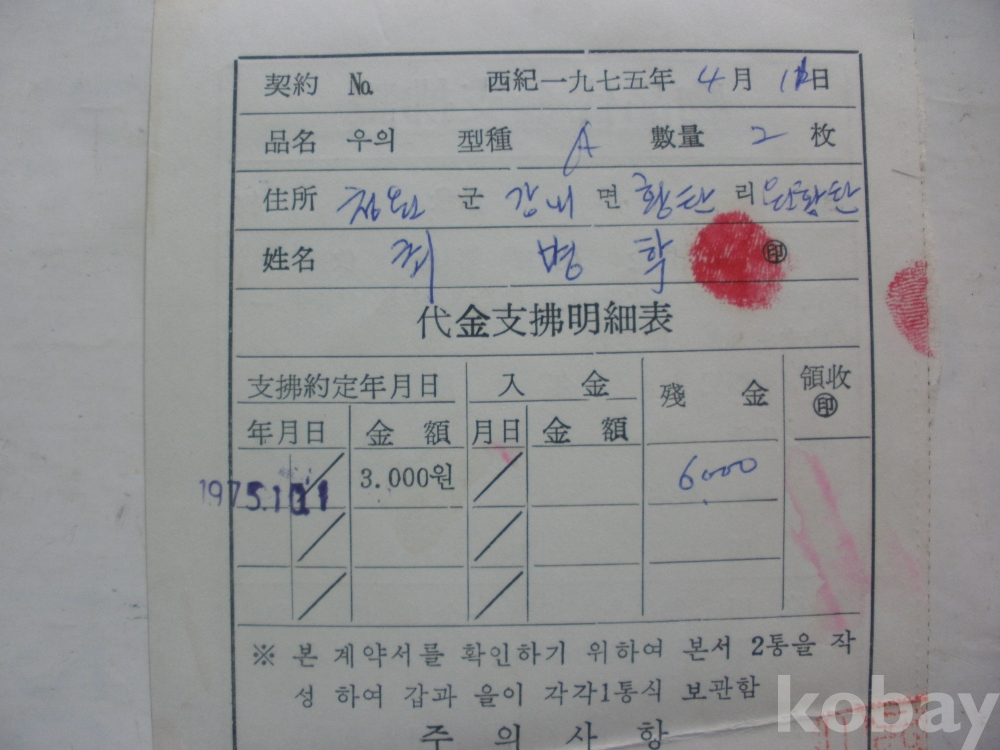 契約 No. 西紀一九七五年 4月 11日
品名 우의 型種 A 數量 2 枚
住所 청원 군 강내 면 황탄 리 원황탄
姓名 최병학 ㊞
代金支拂明細表
支拂約定年月日 入金 殘金 領收㊞
年月日 金額 月日 金額
1975.10.1 3.000원 6000
※ 본 계약서를 확인하기 위하여 본서 2통을 작
성 하여 갑과 을이 각각1통식 보관함
주의사항
kobay